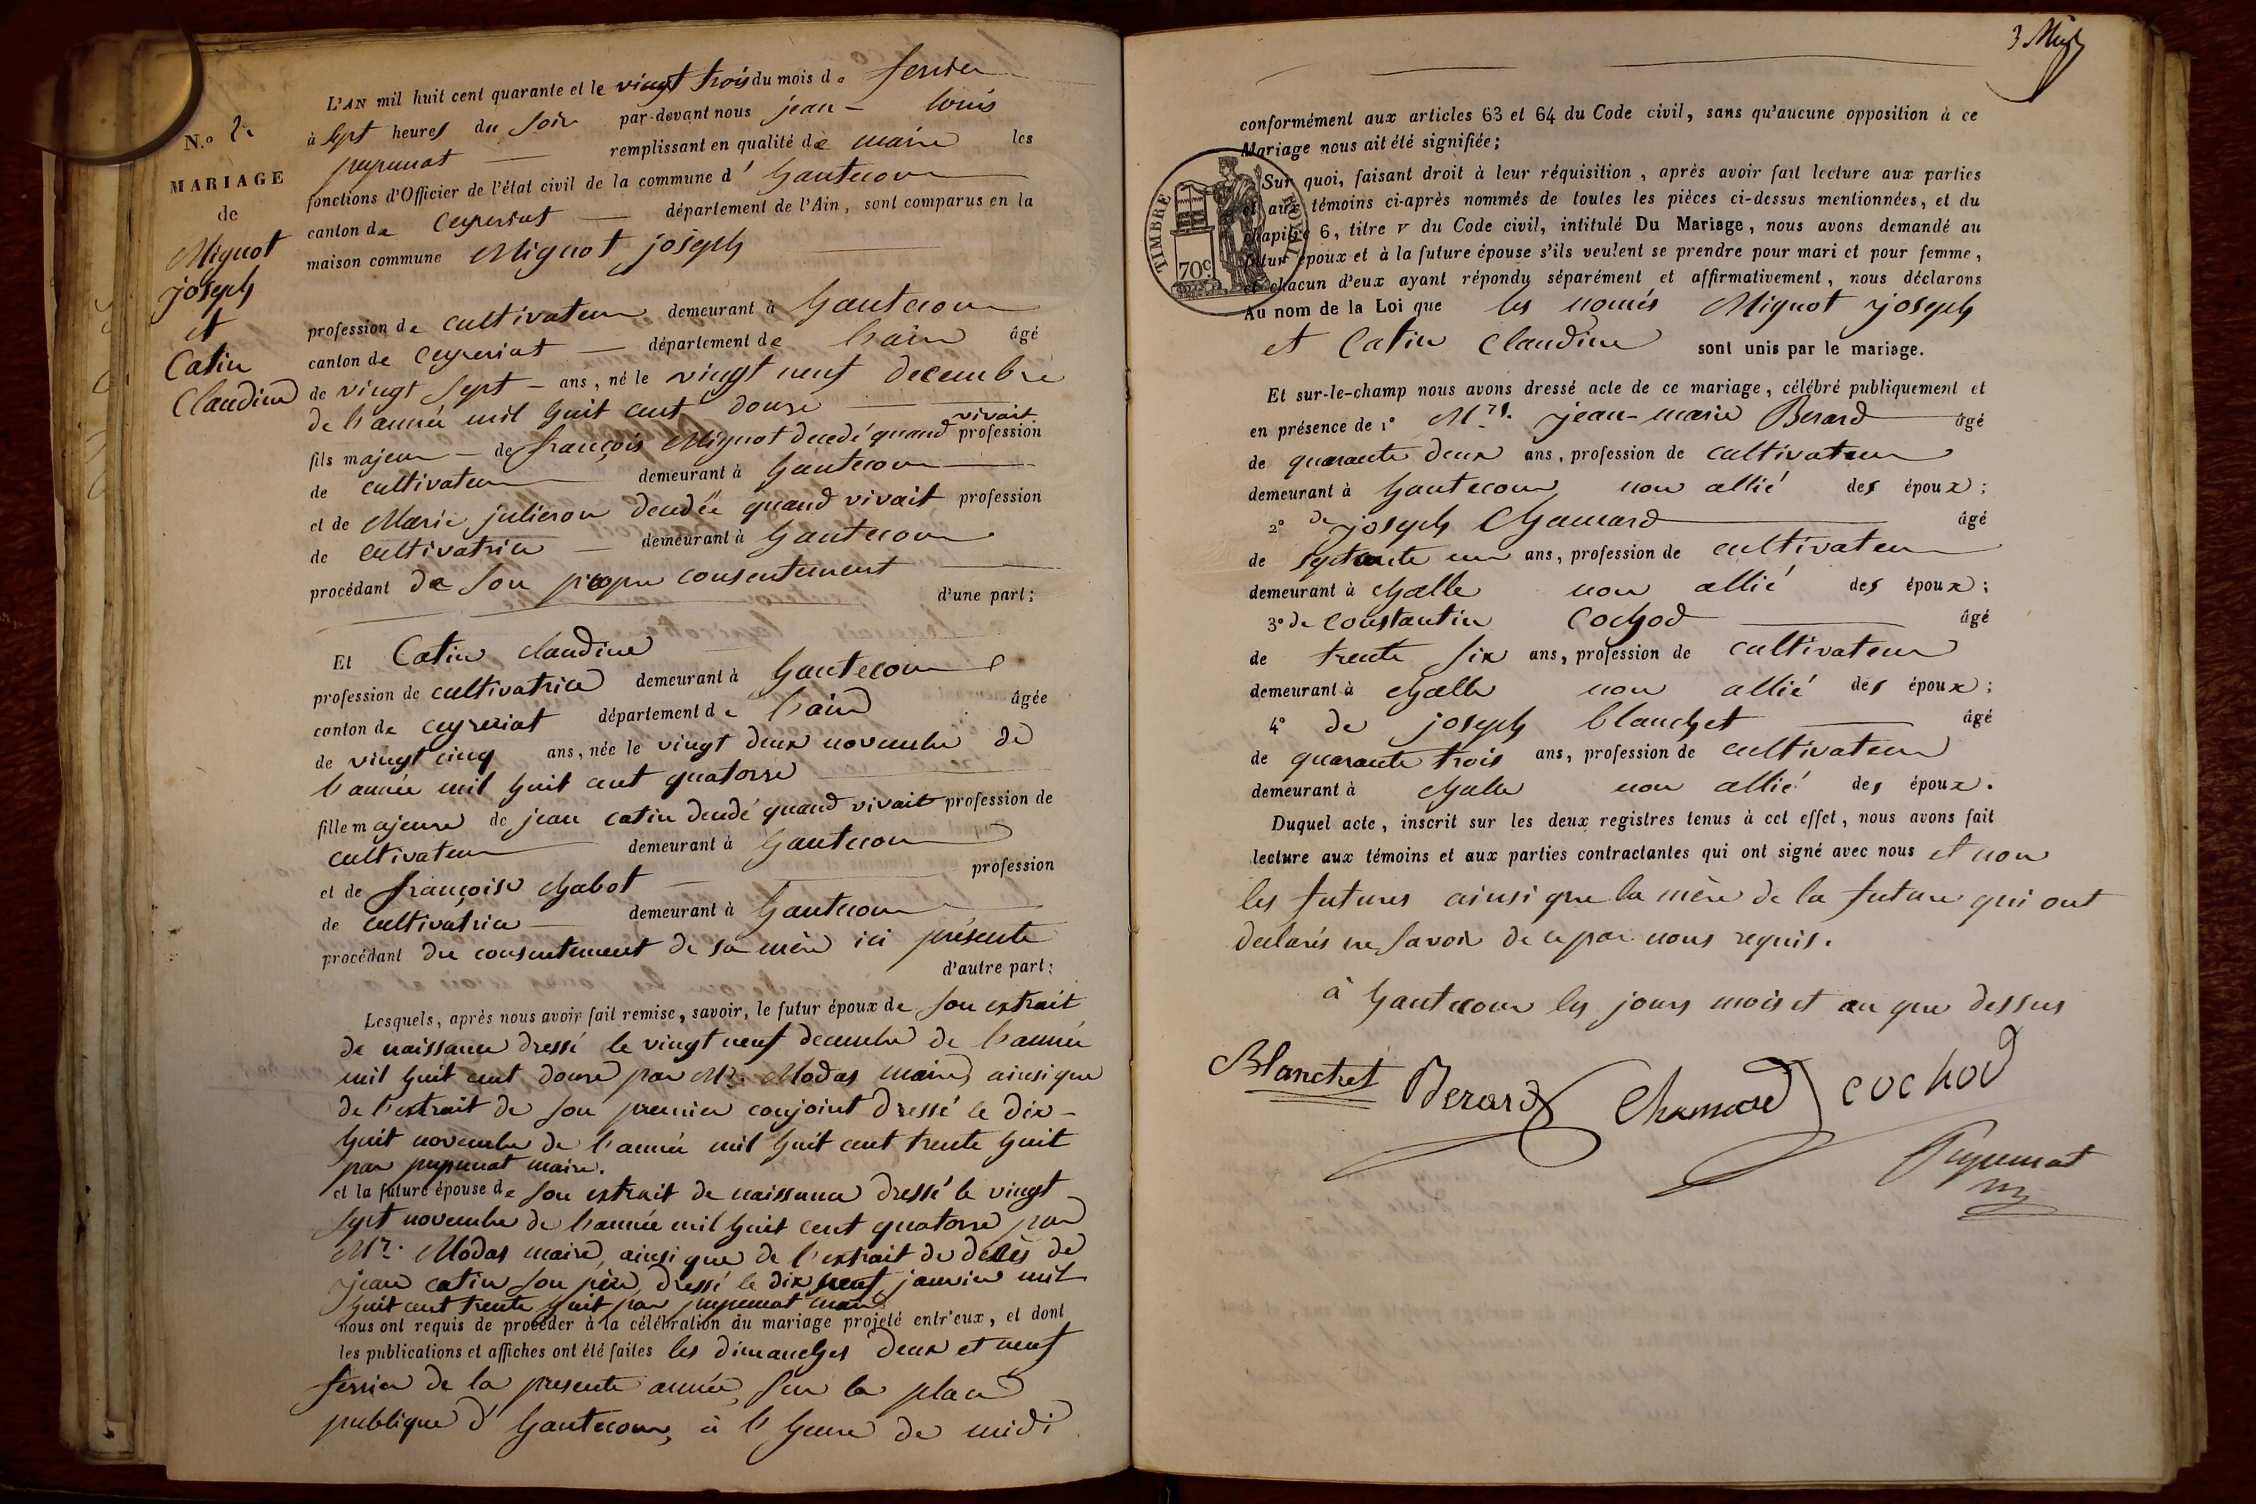 L'AN mil huit cent quarante et le vingt trois du mois de fevrier
à sept heures du soir par-devant nous jean-louis
puyumat remplissant en qualité de maire les
fonctions d'Officier de l'état civil de la commune d'hautecour
canton de ceyzeriat département de l'Ain, sont comparus en la
maison commune Mignot joseph
N.o 2.
MARIAGE
de
Mignot
joseph
et
Catin
Claudine
profession de cultivateur demeurant à hautecour
canton de ceyzeriat département de l'ain âgé
de vingt sept ans, né le vingt neuf decembre
de l'année mil huit cent douze
fils majeur de françois Mignot decedé quand vivait profession
de cultivateur demeurant à hautecour
et de Marie julieron decedée quand vivait profession
de cultivatrice demeurant à hautecour
procédant de son propre consentement
d'une part;
Et Catin claudine
profession de cultivatrice demeurant à hautecour
canton de ceyzeriat département de l'ain âgée
de vingt cinq ans, née le vingt deux novembre de
l'année mil huit cent quatorze
fille majeure de jean catin decedé quand vivait profession de
cultivateur demeurant à hautecour
et de françoise chabot profession
de cultivatrice demeurant à hautecour
procédant du consentement de sa mère ici présente
d'autre part;
Lesquels, après nous avoir fait remise, savoir, le futur époux de son extrait
de naissance dressé le vingt neuf decembre de l'année
mil huit cent douze par Mr. Modas maire, ainsi que
de l'extrait de son premier conjoint dressé le dix-
huit novembre de l'année mil huit cent trente huit
par puyumat maire.
et la future épouse de son extrait de naissance dressé le vingt
sept novembre de l'année mil huit cent quatorze par
Mr. Modas maire, ainsi que de l'extrait de décès de
jean catin son père, dressé le dix neuf janvier mil
huit cent trente huit par puyumat maire
nous ont requis de procéder à la célébration du mariage projeté entr'eux, et dont
les publications et affiches ont été faites les dimanches deux et neuf
fevrier de la presente année, sur la place
publique d'hautecour, à l'heure de midi
conformément aux articles 63 et 64 du Code civil, sans qu'aucune opposition à ce
Mariage nous ait été signifiée;
TIMBRE ROYAL
70c
Sur quoi, faisant droit à leur réquisition, après avoir fait lecture aux parties
et aux témoins ci-après nommés de toutes les pièces ci-dessus mentionnées, et du
chapitre 6, titre v du Code civil, intitulé Du Mariage, nous avons demandé au
futur époux et à la future épouse s'ils veulent se prendre pour mari et pour femme,
et chacun d'eux ayant répondu séparément et affirmativement, nous déclarons
Au nom de la Loi que les només Mignot joseph
et Catin Claudine sont unis par le mariage.
Et sur-le-champ nous avons dressé acte de ce mariage, célébré publiquement et
en présence de 1° Mrs. jean-marie Berard âgé
de quarante deux ans, profession de cultivateur
demeurant à hautecour non allié des époux;
2° de joseph Chamard âgé
de septante un ans, profession de cultivateur
demeurant à challe non allié des époux;
3° de constantin Cochod âgé
de trente six ans, profession de cultivateur
demeurant à challe non allié des époux;
4° de joseph blanchet âgé
de quarante trois ans, profession de cultivateur
demeurant à challe non allié des époux.
Duquel acte, inscrit sur les deux registres tenus à cet effet, nous avons fait
lecture aux témoins et aux parties contractantes qui ont signé avec nous et non
les futures ainsi que la mère de la future qui ont
declarés ne savoir de ce par nous requis.
à hautecour les jours mois et an que dessus
Blanchet Berard Chamard cochod
Puyumat